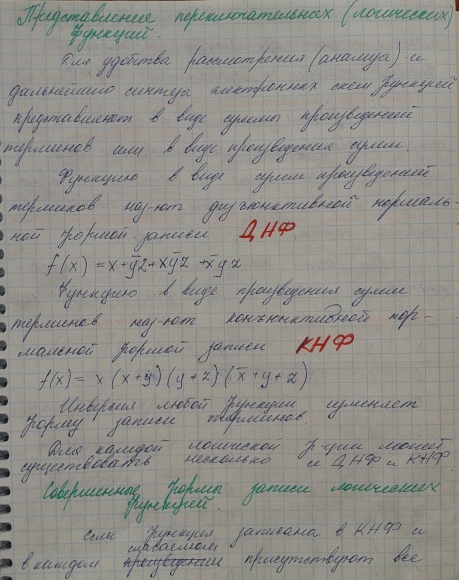 Представление переключательных (логических)
функций.
Для удобства рассмотрения (анализа) и
дальнейшего синтеза электронных схем функцией
представляют в виде суммы произведений
терминов или в виде произведения сумм.
Функцию в виде сумм произведений
терминов наз-ют дизъюнктивной нормаль-
ной формой записи ДНФ
f(x) = x + y̅z + xy̅z + x̅yz
Функцию в виде произведения сумм
терминов наз-ют конъюнктивной нор-
мальной формой записи КНФ
f(x) = x (x+y) (y+z) (x̅+y+z)
Инверсия любой функции изменяет
форму записи терминов.
Для каждой логической ф-ции может
существовать несколько и ДНФ и КНФ
Совершенные формы записи логических
функций.
Если функция записана в КНФ и
слагаемом
в каждом произведении присутствуют все